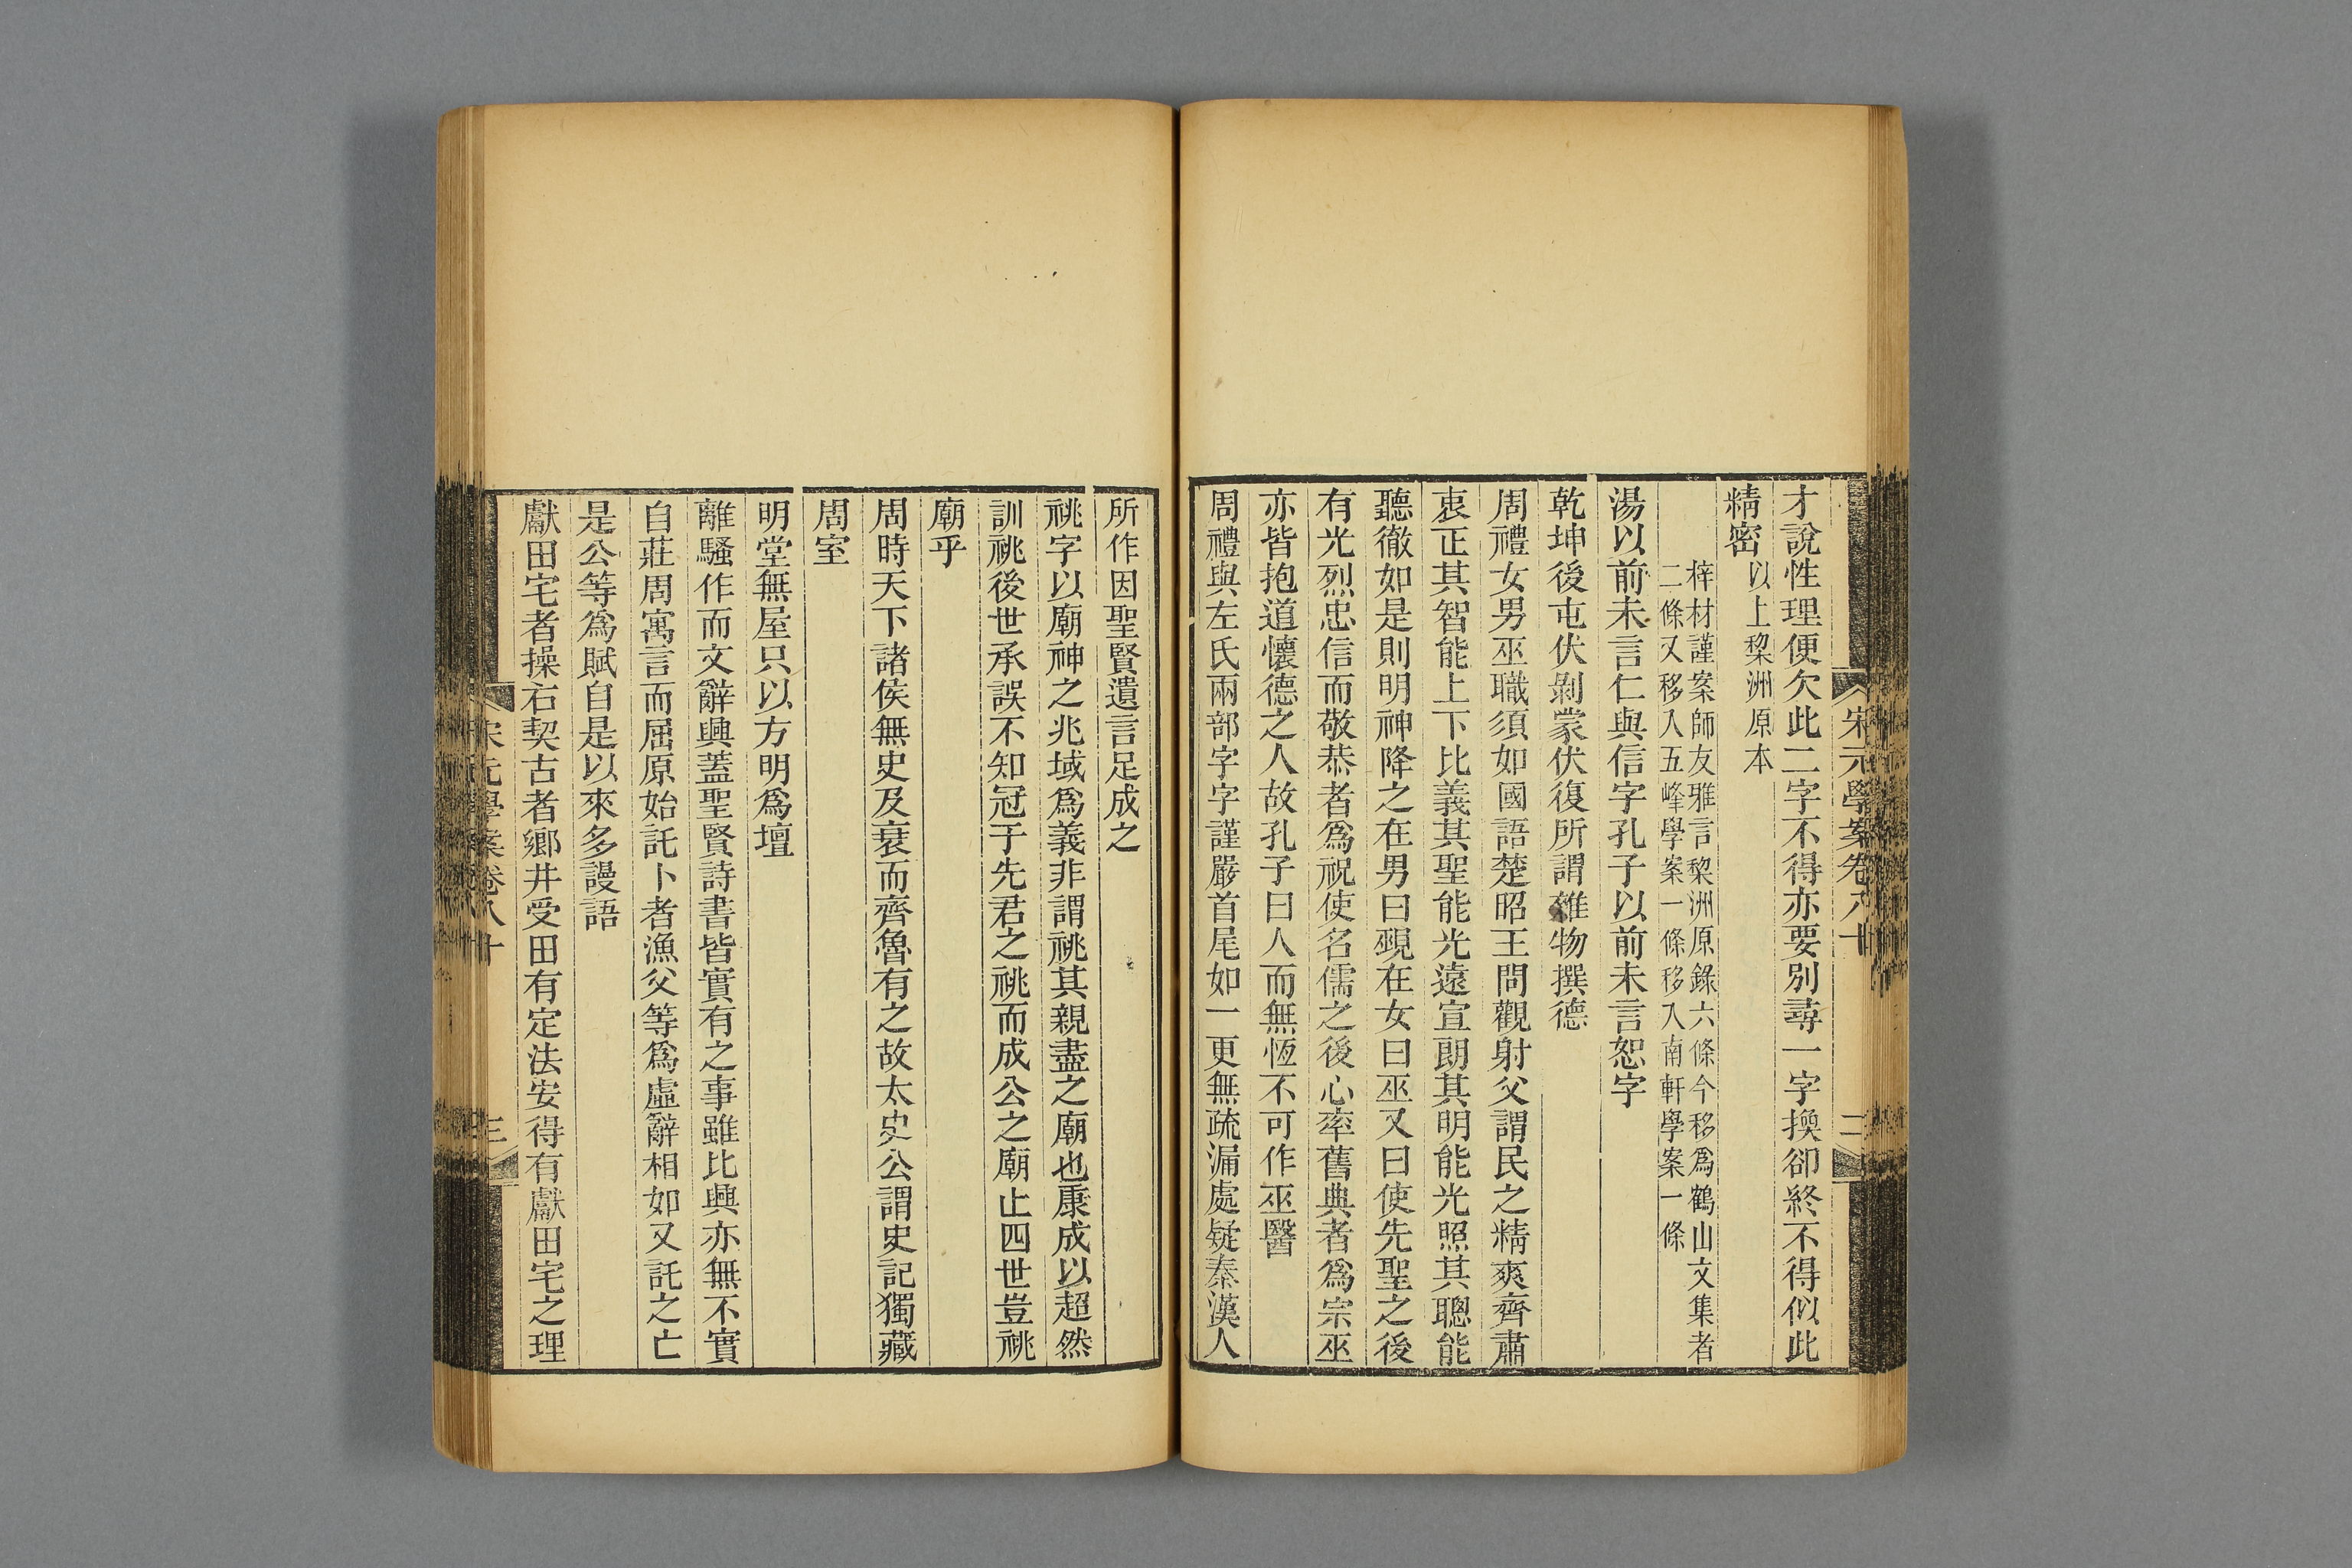 宋元學案卷八十
二
才說性理便欠此二字不得亦要別尋一字換卻終不得似此
精密以上棃洲原本
梓材謹案師友雅言棃洲原錄六條今移爲鶴山文集者
二條又移入五峰學案一條移入南軒學案一條
湯以前未言仁與信字孔子以前未言恕字
乾坤後屯伏剝蒙伏復所謂雜物撰德
周禮女男巫職須如國語楚昭王問觀射父謂民之精爽齊肅
衷正其智能上下比義其聖能光遠宣朗其明能光照其聰能
聽徹如是則明神降之在男曰覡在女曰巫又曰使先聖之後
有光烈忠信而敬恭者爲祝使名儒之後心率舊典者爲宗巫
亦皆抱道懷德之人故孔子曰人而無恆不可作巫醫
周禮與左氏兩部字字謹嚴首尾如一更無疏漏處疑秦漢人
所作因聖賢遺言足成之
祧字以廟神之兆域爲義非謂祧其親盡之廟也康成以超然
訓祧後世承誤不知冠于先君之祧而成公之廟止四世豈祧
廟乎
周時天下諸侯無史及衰而齊魯有之故太史公謂史記獨藏
周室
明堂無屋只以方明爲壇
離騷作而文辭興蓋聖賢詩書皆實有之事雖比興亦無不實
自莊周寓言而屈原始託卜者漁父等爲虛辭相如又託之亡
是公等爲賦自是以來多謾語
獻田宅者操右契古者鄉井受田有定法安得有獻田宅之理
宋元學案卷八十
三